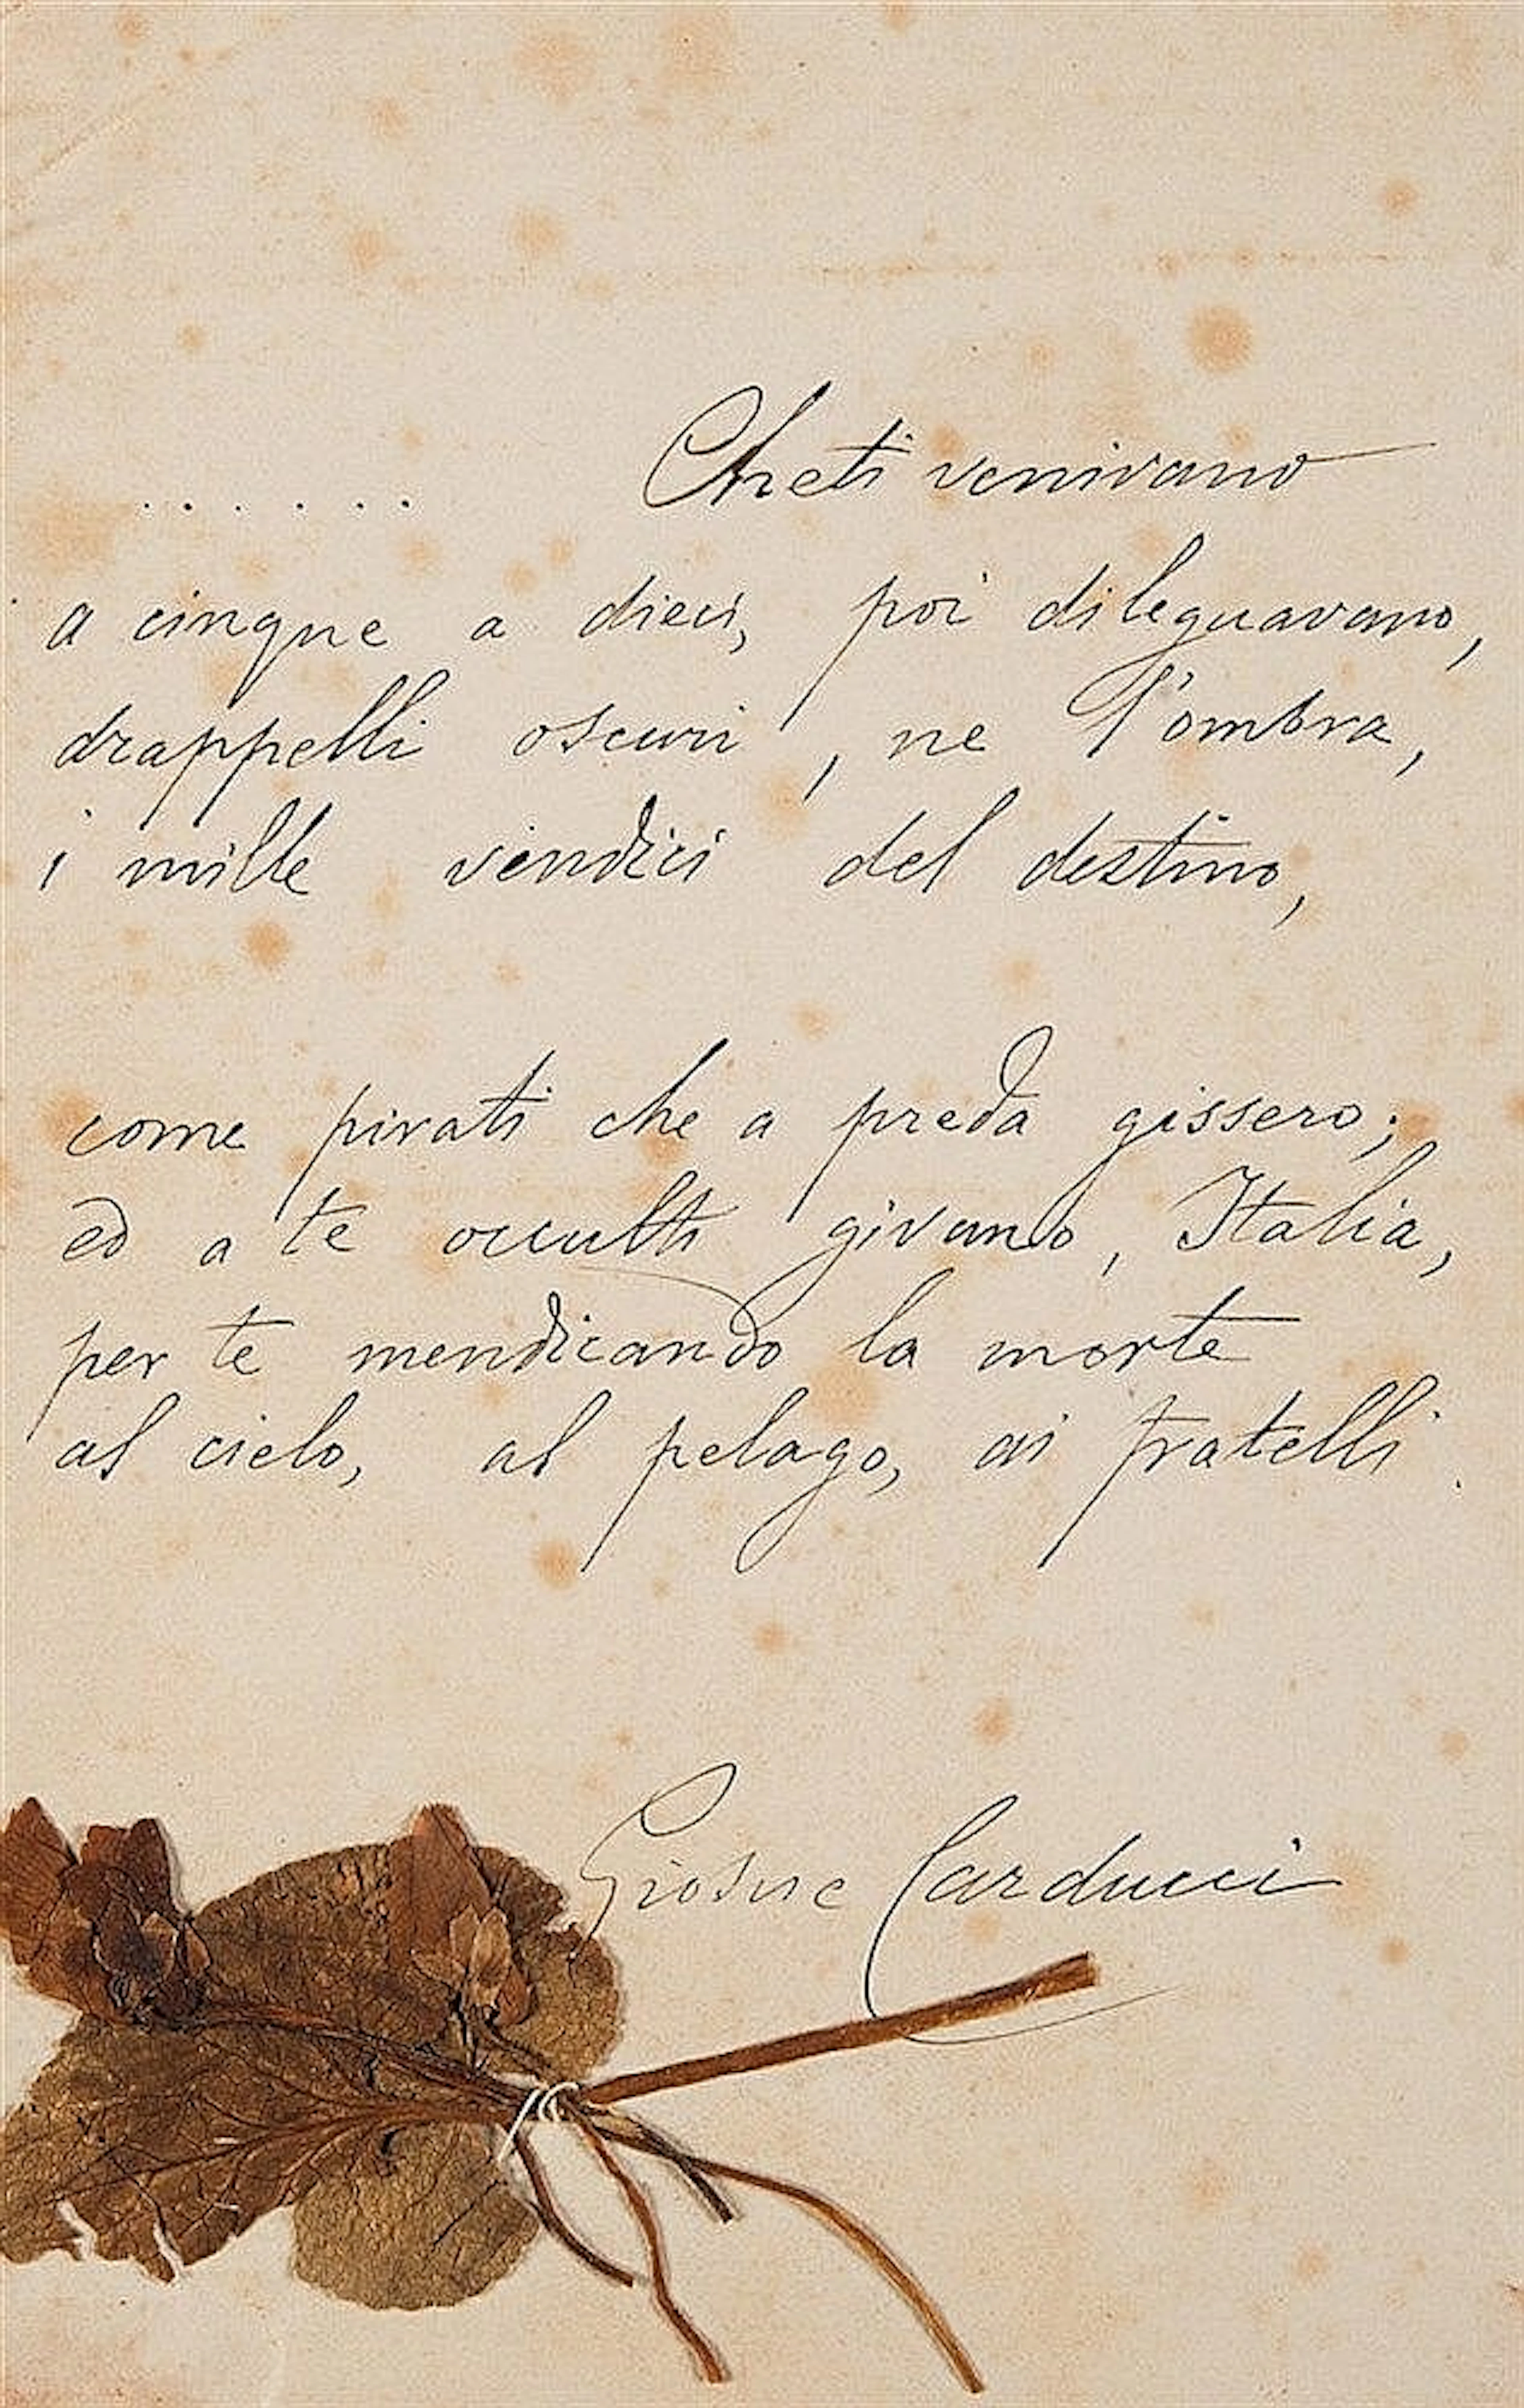 . . . . . . Cheti venivano
a cinque a dieci, poi dileguavano,
drappelli oscuri, ne l'ombra,
i mille vindici del destino,
come pirati che a preda gissero;
ed a te occulti givano, Italia,
per te mendicando la morte
al cielo, al pelago, ai fratelli.
Giosue Carducci